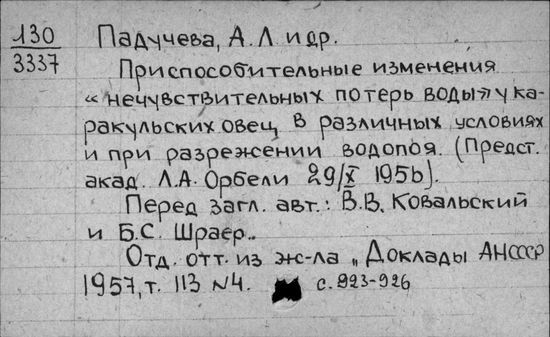 130
3337
Падучева, А.Л и др.
Приспособительные изменения
“нечувствительных потерь воды” у ка-
ракульских овец в различных условиях
и при разрежении водопоя. (Предст.
акад. Л.А. Орбели 29/X 1956).
Перед загл. авт.: В.В. Ковальский
и Б.С. Шраер..
Отд. отт. из ж-ла „Доклады АНСССР
1957, т. 113 №4. с. 923-926